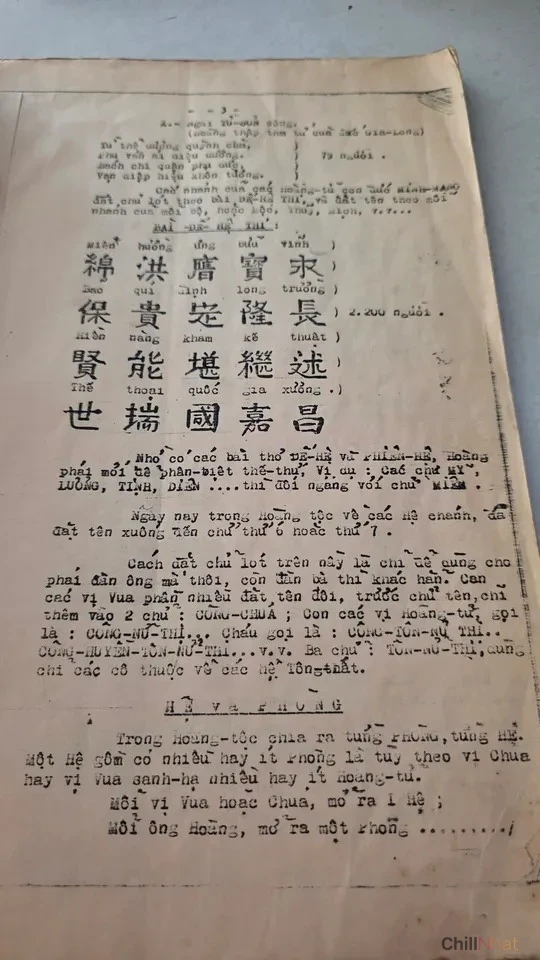 - - 3 -
(Hoàng thập tam tử của Đức Gia-Long)
Từ thể dương quỳnh cẩm, )
Phụ văn ái diệu dương. ) 79 người .
Bách chi quân phụ dực, )
Vạn diệp hiệu khôn tương. )
Các nhánh của các Hoàng-tử con Đức MINH-MẠNG
đặt chữ lót theo bài ĐẾ-HỆ THI, và đặt tên theo mỗi
nhánh của mỗi bộ, hoặc Mộc, Thuỷ, Mịch, v.v...
BÀI ĐẾ-HỆ THI :
Miên hường ưng bửu vĩnh )
綿 洪 膺 寶 永 )
Bảo quí định long trường )
保 貴 定 隆 長 ) 2.200 người .
Hiền năng kham kế thuật )
賢 能 堪 繼 述 )
Thế thoại quốc gia xương .)
世 瑞 國 嘉 昌
Nhờ có các bài thơ ĐẾ-HỆ và PHIÊN-HỆ, Hoàng
phái mới dễ phân-biệt thế-thứ, Ví dụ : Các chữ MỸ,
LƯƠNG, TỊNH, DIÊN ....thì đối ngang với chữ MIÊN .
Ngày nay trong Hoàng tộc về các Hệ chánh, đã
đặt tên xuống đến chữ thứ 6 hoặc thứ 7 .
Cách đặt chữ lót trên này là chỉ để dùng cho
phái đàn ông mà thôi, còn đàn bà thì khác hẳn. Con
các vị Vua phần nhiều đặt tên đôi, trước chữ tên, chỉ
thêm vào 2 chữ : CÔNG-CHÚA ; Con các vị Hoàng-tử, gọi
là : CÔNG-NỮ-THỊ... Cháu gọi là : CÔNG-TÔN-NỮ THỊ..
CÔNG-HUYỀN-TÔN-NỮ-THỊ...v.v. Ba chữ : TÔN-NỮ-THỊ, dùng
chỉ các cô thuộc về các hệ Tôngthất.
HỆ và PHÒNG
Trong Hoàng-tộc chia ra từng PHÒNG, từng HỆ.
Một Hệ gồm có nhiều hay ít Phòng là tùy theo vị Chúa
hay vị Vua sanh-hạ nhiều hay ít Hoàng-tử.
Mỗi vị Vua hoặc Chúa, mở ra 1 Hệ ;
Mỗi ông Hoàng, mở ra một Phòng ........./
ChillNhat